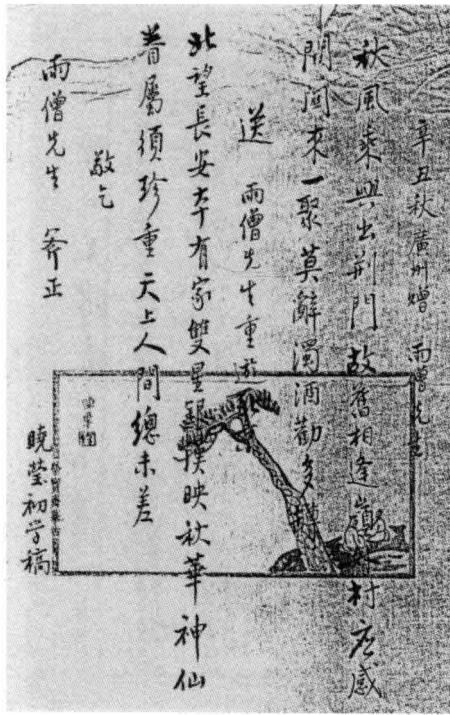 辛丑秋廣州贈 雨僧先生
秋風乘興出荊門故舊相逢村應感
間關來一聚莫辭濁酒勸多樽
送 雨僧先生重遊
北望長安本有家雙星銀漢映秋華神仙
眷屬須珍重天上人間總未差
敬乞
雨僧先生 斧正
曉瑩初學稿